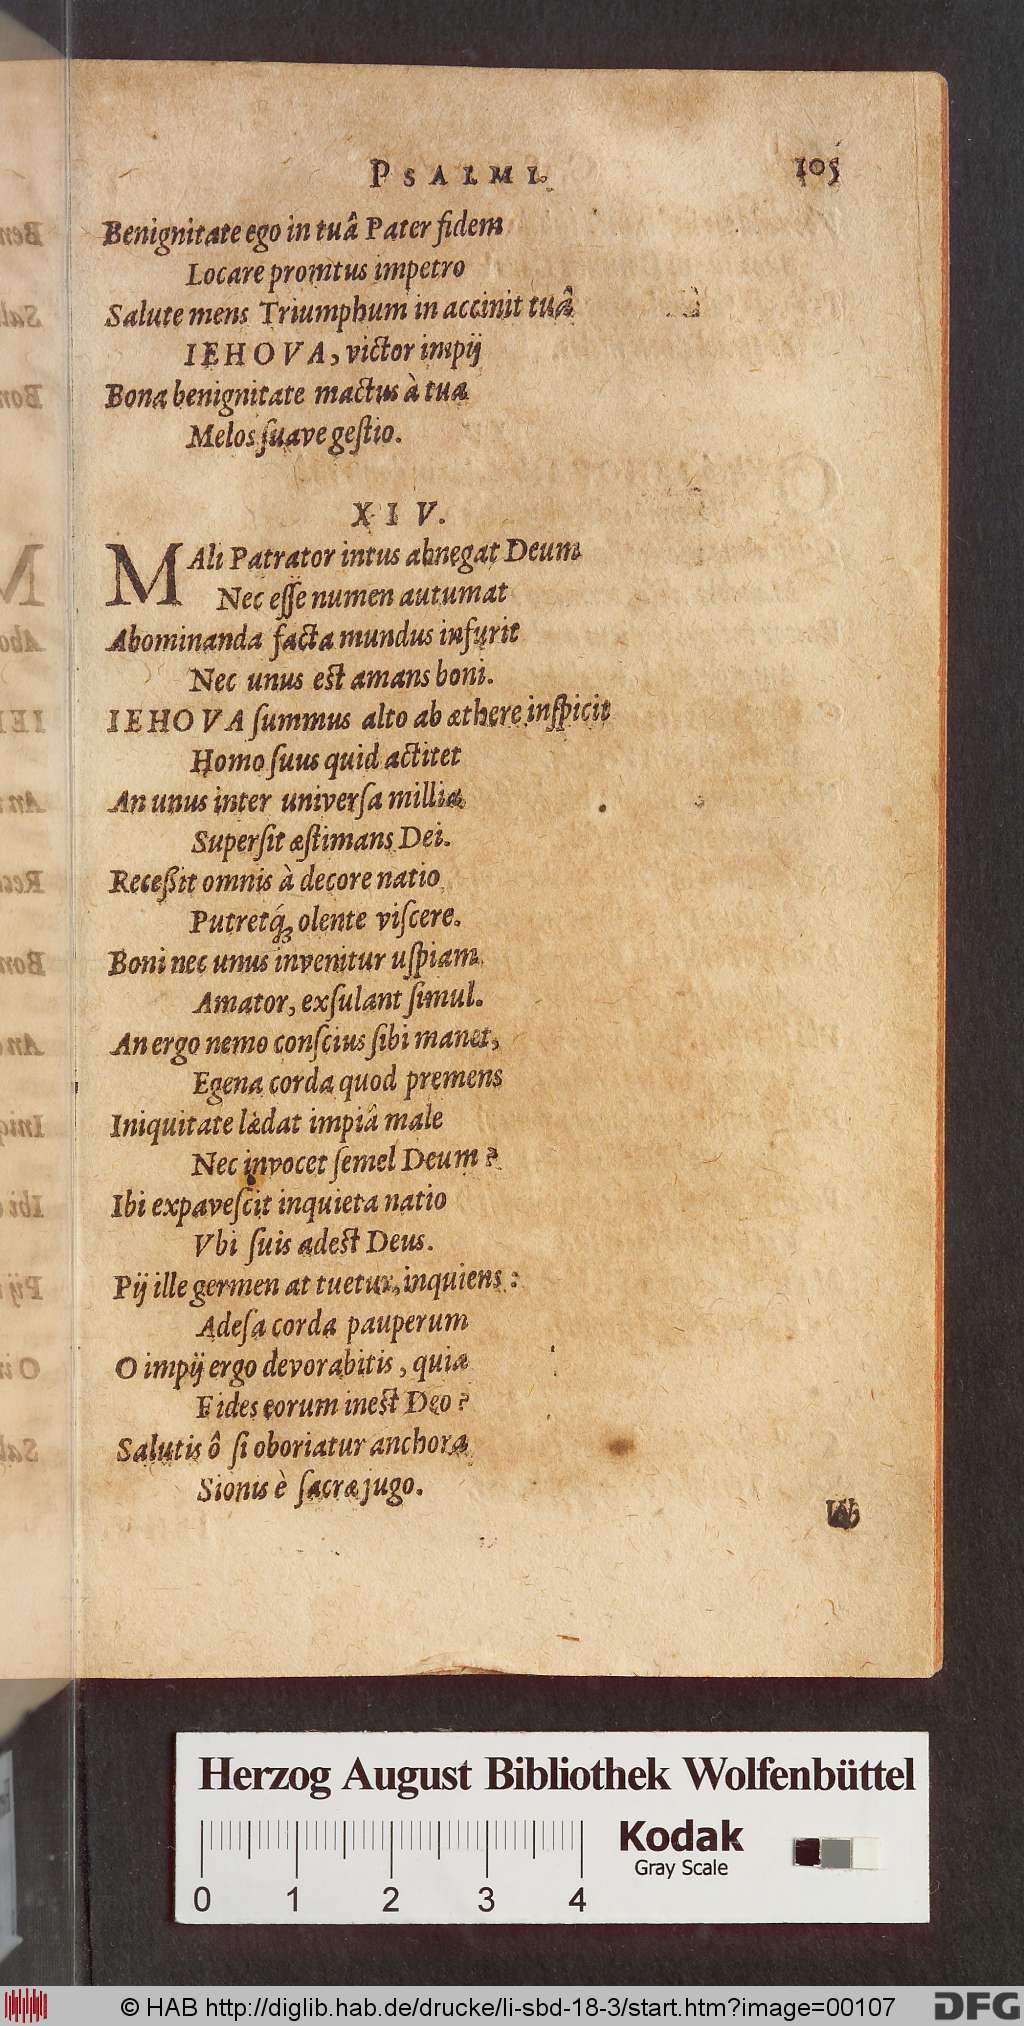 PSALMI. 105
Benignitate ego in tuâ Pater fidem
Locare promtus impetro
Salute mens Triumphum in accinit tuâ
IEHOVA, victor impij
Bona benignitate mactus à tua
Melos ſuave geſtio.
XIV.
MAli Patrator intus abnegat Deum
Nec eſſe numen autumat
Abominanda facta mundus infurit
Nec unus est amans boni.
IEHOVA ſummus alto ab æthere inſpicit
Homo ſuus quid actitet
An unus inter univerſa millia
Superſit æſtimans Dei.
Receßit omnis à decore natio
Putretq́; olente viſcere.
Boni nec unus invenitur uſpiam
Amator, exſulant ſimul.
An ergo nemo conſcius ſibi manet,
Egena corda quod premens
Iniquitate lædat impiâ male
Nec invocet ſemel Deum?
Ibi expaveſcit inquieta natio
Vbi ſuis adest Deus.
Pij ille germen at tuetur, inquiens:
Adeſa corda pauperum
O impij ergo devorabitis, quia
Fides eorum inest Deo?
Salutis ô ſi oboriatur anchora
Sionis è ſacræ jugo.
Herzog August Bibliothek Wolfenbüttel
Kodak
Gray Scale
0 1 2 3 4
© HAB http://diglib.hab.de/drucke/li-sbd-18-3/start.htm?image=00107
DFG